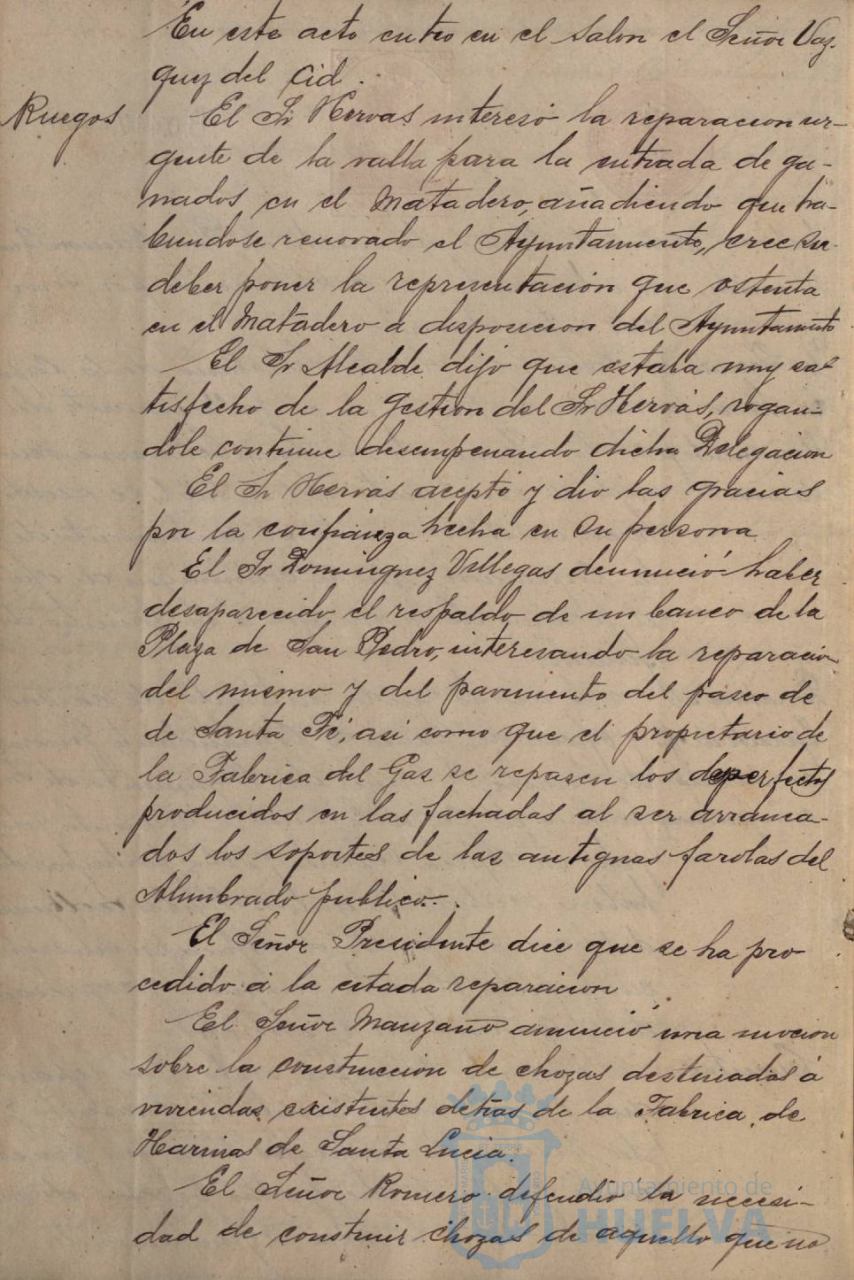 En este acto entro en el salon el Señor Vaz-
quez del Cid.
Ruegos
El Sr Hervas interesó la reparacion ur-
gente de la valla para la entrada de ga-
nados en el Matadero, añadiendo que ha-
biendose renovado el Ayuntamiento, cree su
deber poner la representación que ostenta
en el Matadero a disposicion del Ayuntamiento
El Sr Alcalde dijo que estaba muy sa-
tisfecho de la gestion del Sr Hervás, rogan-
dole continue desempenando dicha Delegacion
El Sr Hervás aceptó y dio las gracias
por la confianza hecha en su persona
El Sr Dominguez Villegas denunció haber
desaparecido el respaldo de un banco de la
Plaza de San Pedro, interesando la reparacion
del mismo y del pavimento del paseo de
de Santa Fé, asi como que el propietario de
la Fabrica del Gas se reparen los desperfectos
producidos en las fachadas al ser arranca-
dos los soportes de las antiguas farolas del
Alumbrado publico.
El Señor Presidente dice que se ha pro
cedido á la citada reparacion
El Señor Manzano anunció una mocion
sobre la construccion de chozas destinadas á
viviendas existentes detras de la Fabrica de
Harinas de Santa Lucia.
El Señor Romero defendio la necesi-
dad de construir chozas de aquello que no
Ayuntamiento de
HUELVA